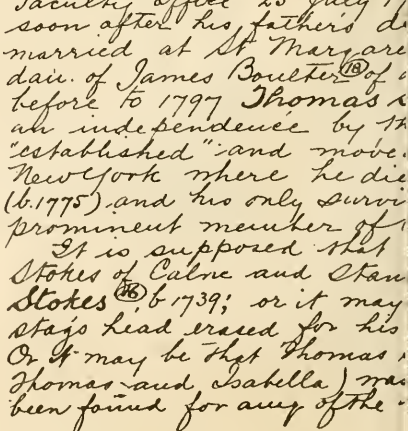 faculty office 25 July 1
soon after his father's d
married at St Margare
dau. of James Boulter (18) of a
before to 1797 Thomas s
an independence by th
"established" and move
New York where he die
(b. 1775) and his only survi
prominent member of t
It is supposed that
Stokes of Calne and Stan
Stokes b 1739; or it may
stags head erased for his
Or it may be that Thomas
Thomas and Isabella) was
been found for any of the